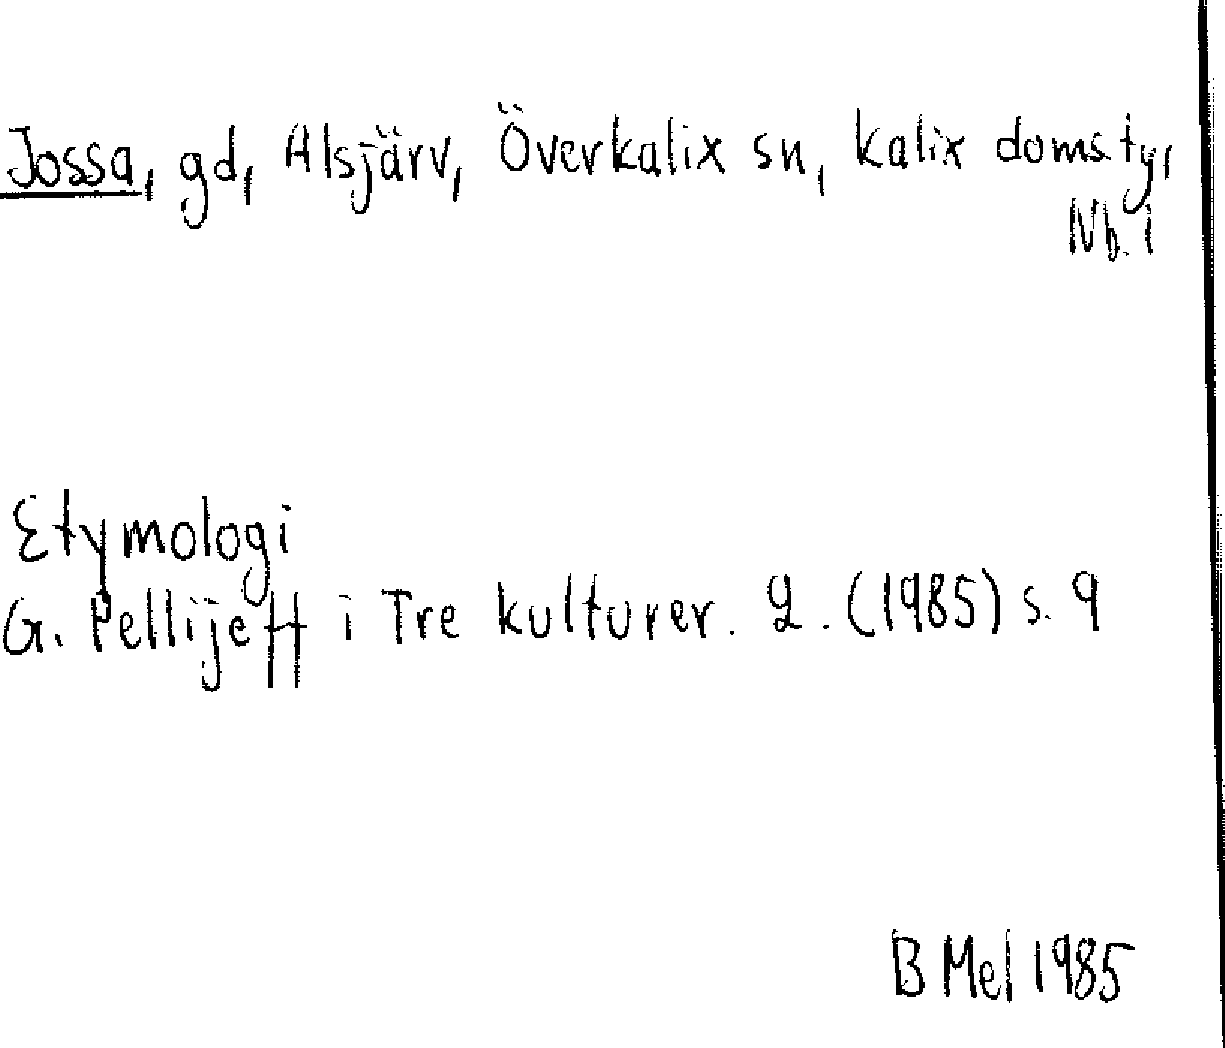 Jossa, gd, Alsjärv, Överkalix sn, Kalix doms.ty,
Nb. l
Etymologi
G. Pellijeff i Tre kulturer. 2. (1985) s. 9
B Mel 1985